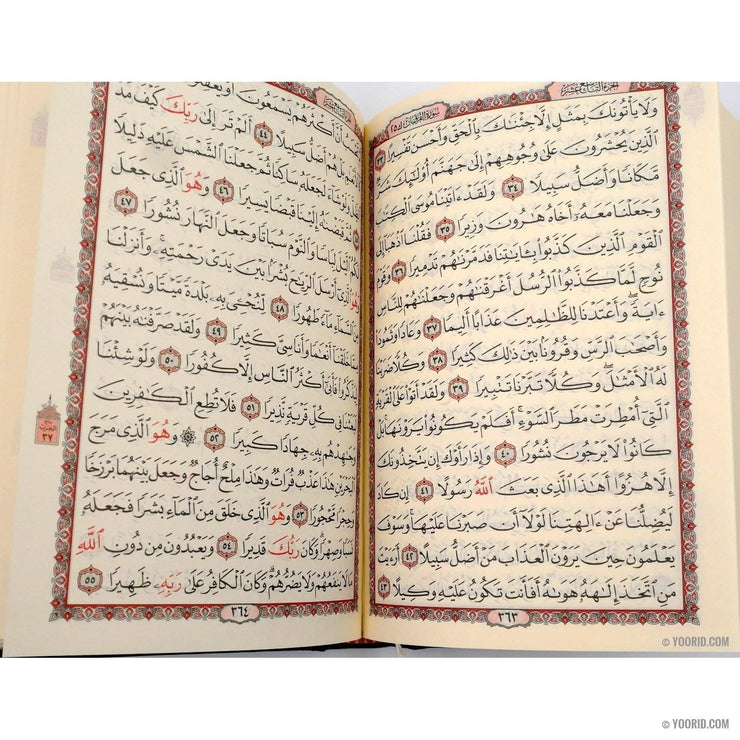 الجزء التاسع عشر
سورة الفرقان ٢٥
ولا يأتونك بمثل إلا جئنك بالحق وأحسن تفسيرا ٣٣
الذين يحشرون على وجوههم إلى جهنم أولئك شر
مكانا وأضل سبيلا ٣٤ ولقد ءاتينا موسى الكتب
وجعلنا معه أخاه هرون وزيرا ٣٥ فقلنا اذهبا إلى
القوم الذين كذبوا بءايتنا فدمرنهم تدميرا ٣٦ وقوم
نوح لما كذبوا الرسل أغرقنهم وجعلنهم للناس
ءاية وأعتدنا للظلمين عذابا أليما ٣٧ وعادا وثمودا
وأصحب الرس وقرونا بين ذلك كثيرا ٣٨ وكلا ضربنا
له الأمثل وكلا تبرنا تتبيرا ٣٩ ولقد أتوا على القرية
التي أمطرت مطر السوء أفلم يكونوا يرونها بل
كانوا لا يرجون نشورا ٤٠ وإذا رأوك إن يتخذونك
إلا هزوا أهذا الذي بعث الله رسولا ٤١ إن كاد
ليضلنا عن ءالهتنا لولا أن صبرنا عليها وسوف
يعلمون حين يرون العذاب من أضل سبيلا ٤٢ أرءيت
من اتخذ إلهه هوىه أفأنت تكون عليه وكيلا ٤٣
٣٦٣
أن أكثرهم يسمعون أو يعقلون
بل هم أضل سبيلا ٤٤ ألم تر إلى ربك كيف مد
ولو شاء لجعله ساكنا ثم جعلنا الشمس عليه دليلا
قبضنه إلينا قبضا يسيرا ٤٦ وهو الذي جعل
لكم اليل لباسا والنوم سباتا وجعل النهار نشورا ٤٧
وهو الذي أرسل الريح بشرا بين يدى رحمته وأنزلنا
من السماء ماء طهورا ٤٨ لنحۧى به بلدة ميتا ونسقيه
مما خلقنا أنعما وأناسى كثيرا ٤٩ ولقد صرفنه بينهم
ليذكروا فأبى أكثر الناس إلا كفورا ٥٠ ولو شئنا
لبعثنا في كل قرية نذيرا ٥١ فلا تطع الكفرين
وجهدهم به جهادا كبيرا ٥٢ ۞ وهو الذي مرج
البحرين هذا عذب فرات وهذا ملح أجاج وجعل بينهما برزخا
وحجرا محجورا ٥٣ وهو الذي خلق من الماء بشرا فجعله
نسبا وصهرا وكان ربك قديرا ٥٤ ويعبدون من دون الله
ما لا ينفعهم ولا يضرهم وكان الكافر على ربه ظهيرا ٥٥
٣٦٤
٣٧
© YOORID.COM
© YOORID.COM